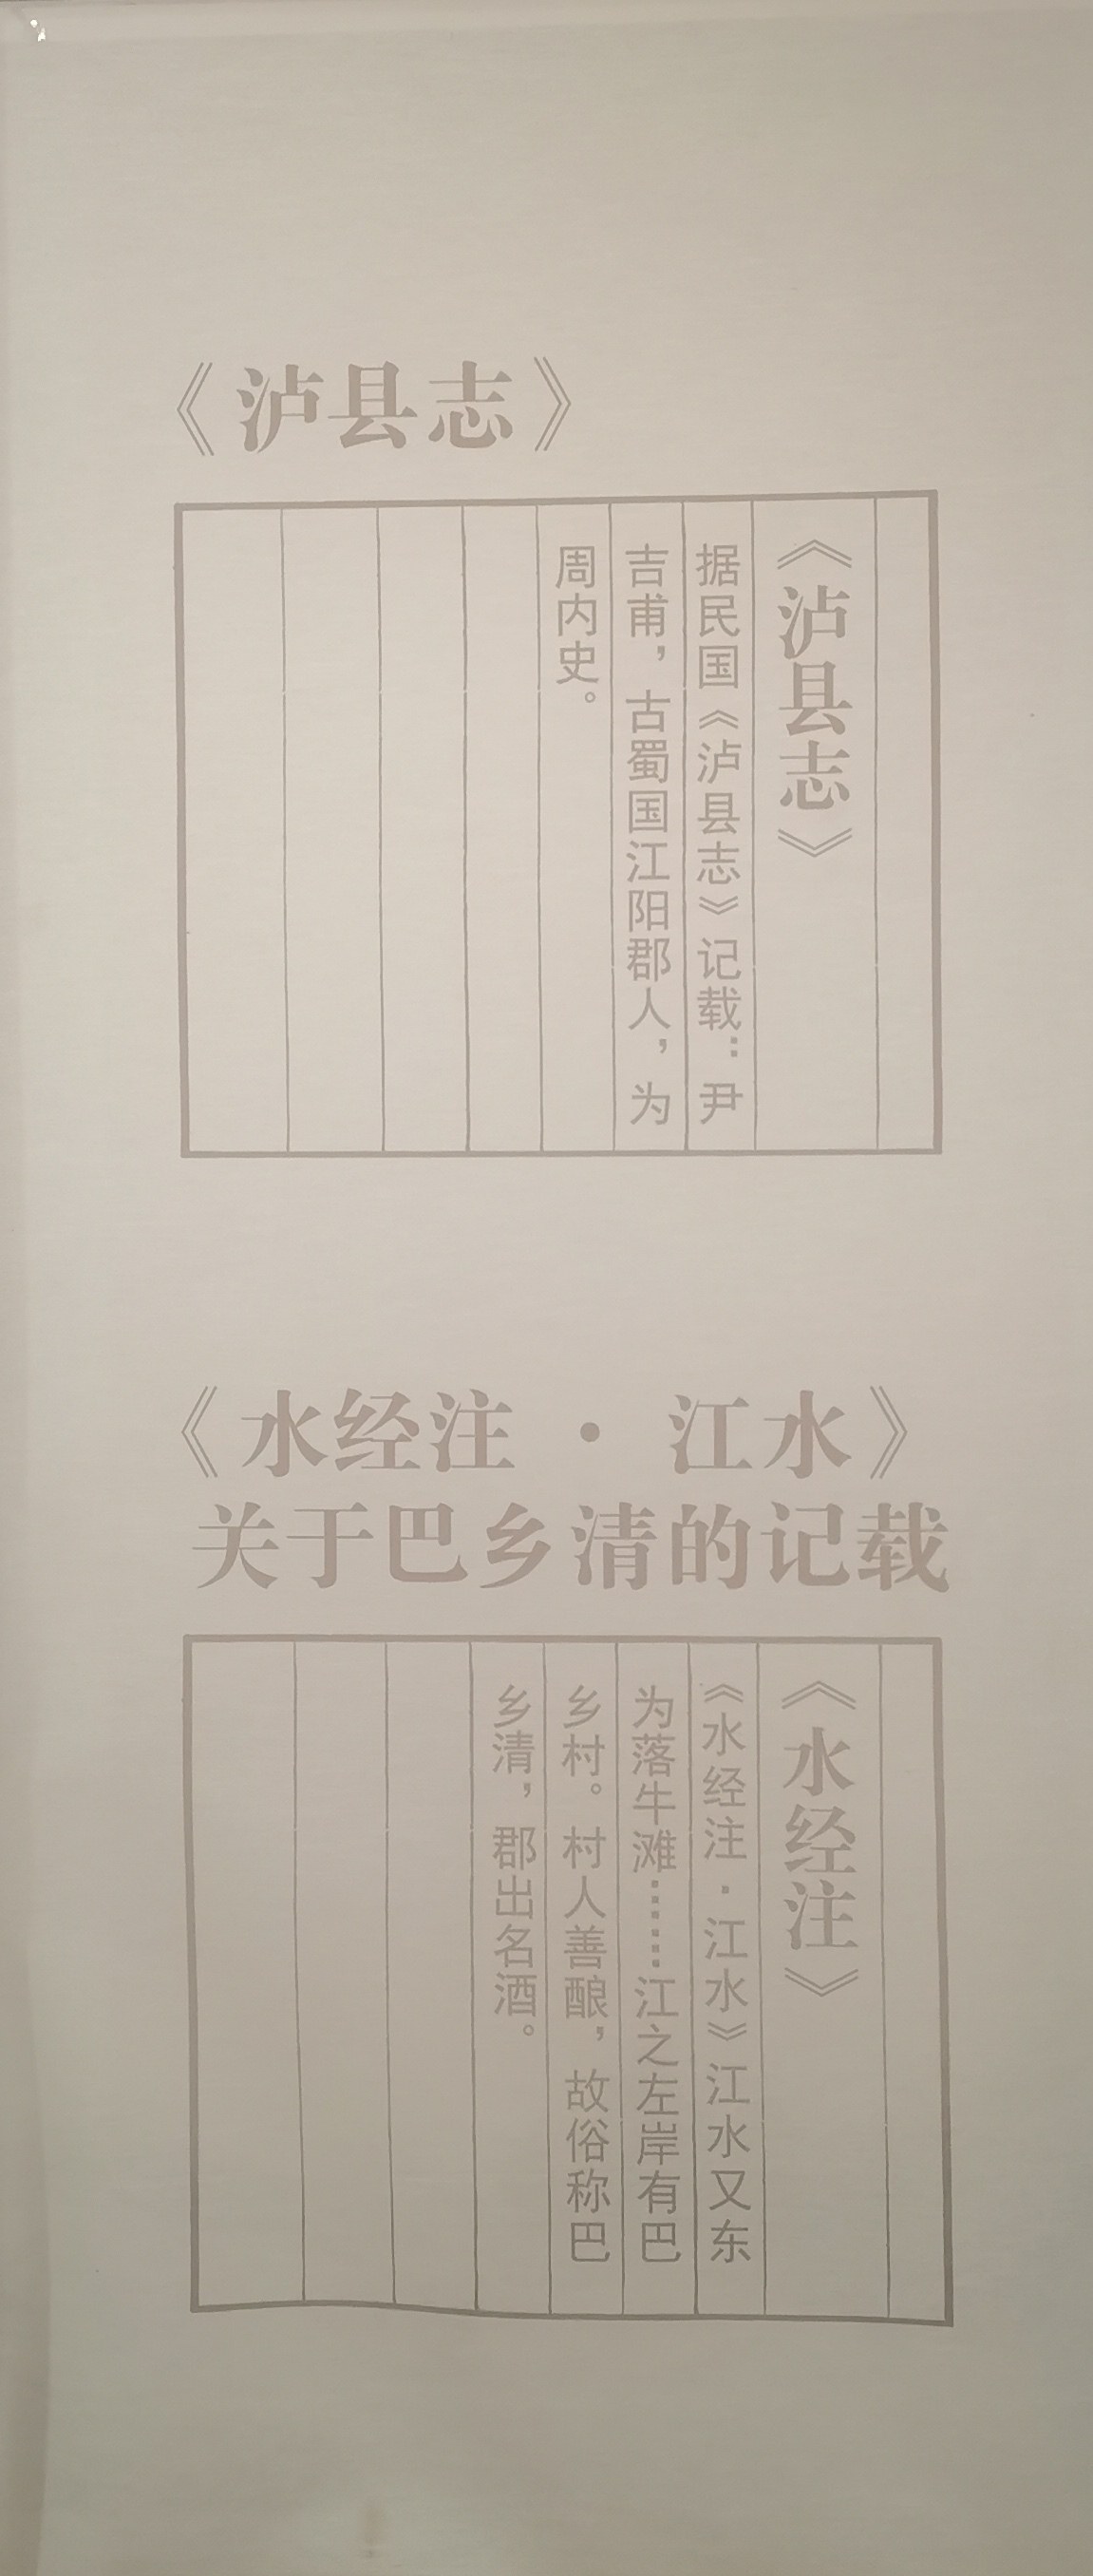 《泸县志》
《泸县志》
据民国《泸县志》记载：尹
吉甫，古蜀国江阳郡人，为
周内史。
《水经注·江水》
关于巴乡清的记载
《水经注》
《水经注·江水》江水又东
为落牛滩……江之左岸有巴
乡村。村人善酿，故俗称巴
乡清，郡出名酒。